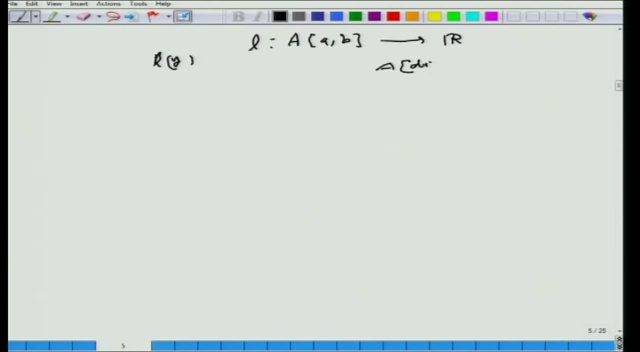 File Edit View Insert Actions Tools Help
l : A [a, b] ⟶ ℝ
l(y)
5 / 25
5